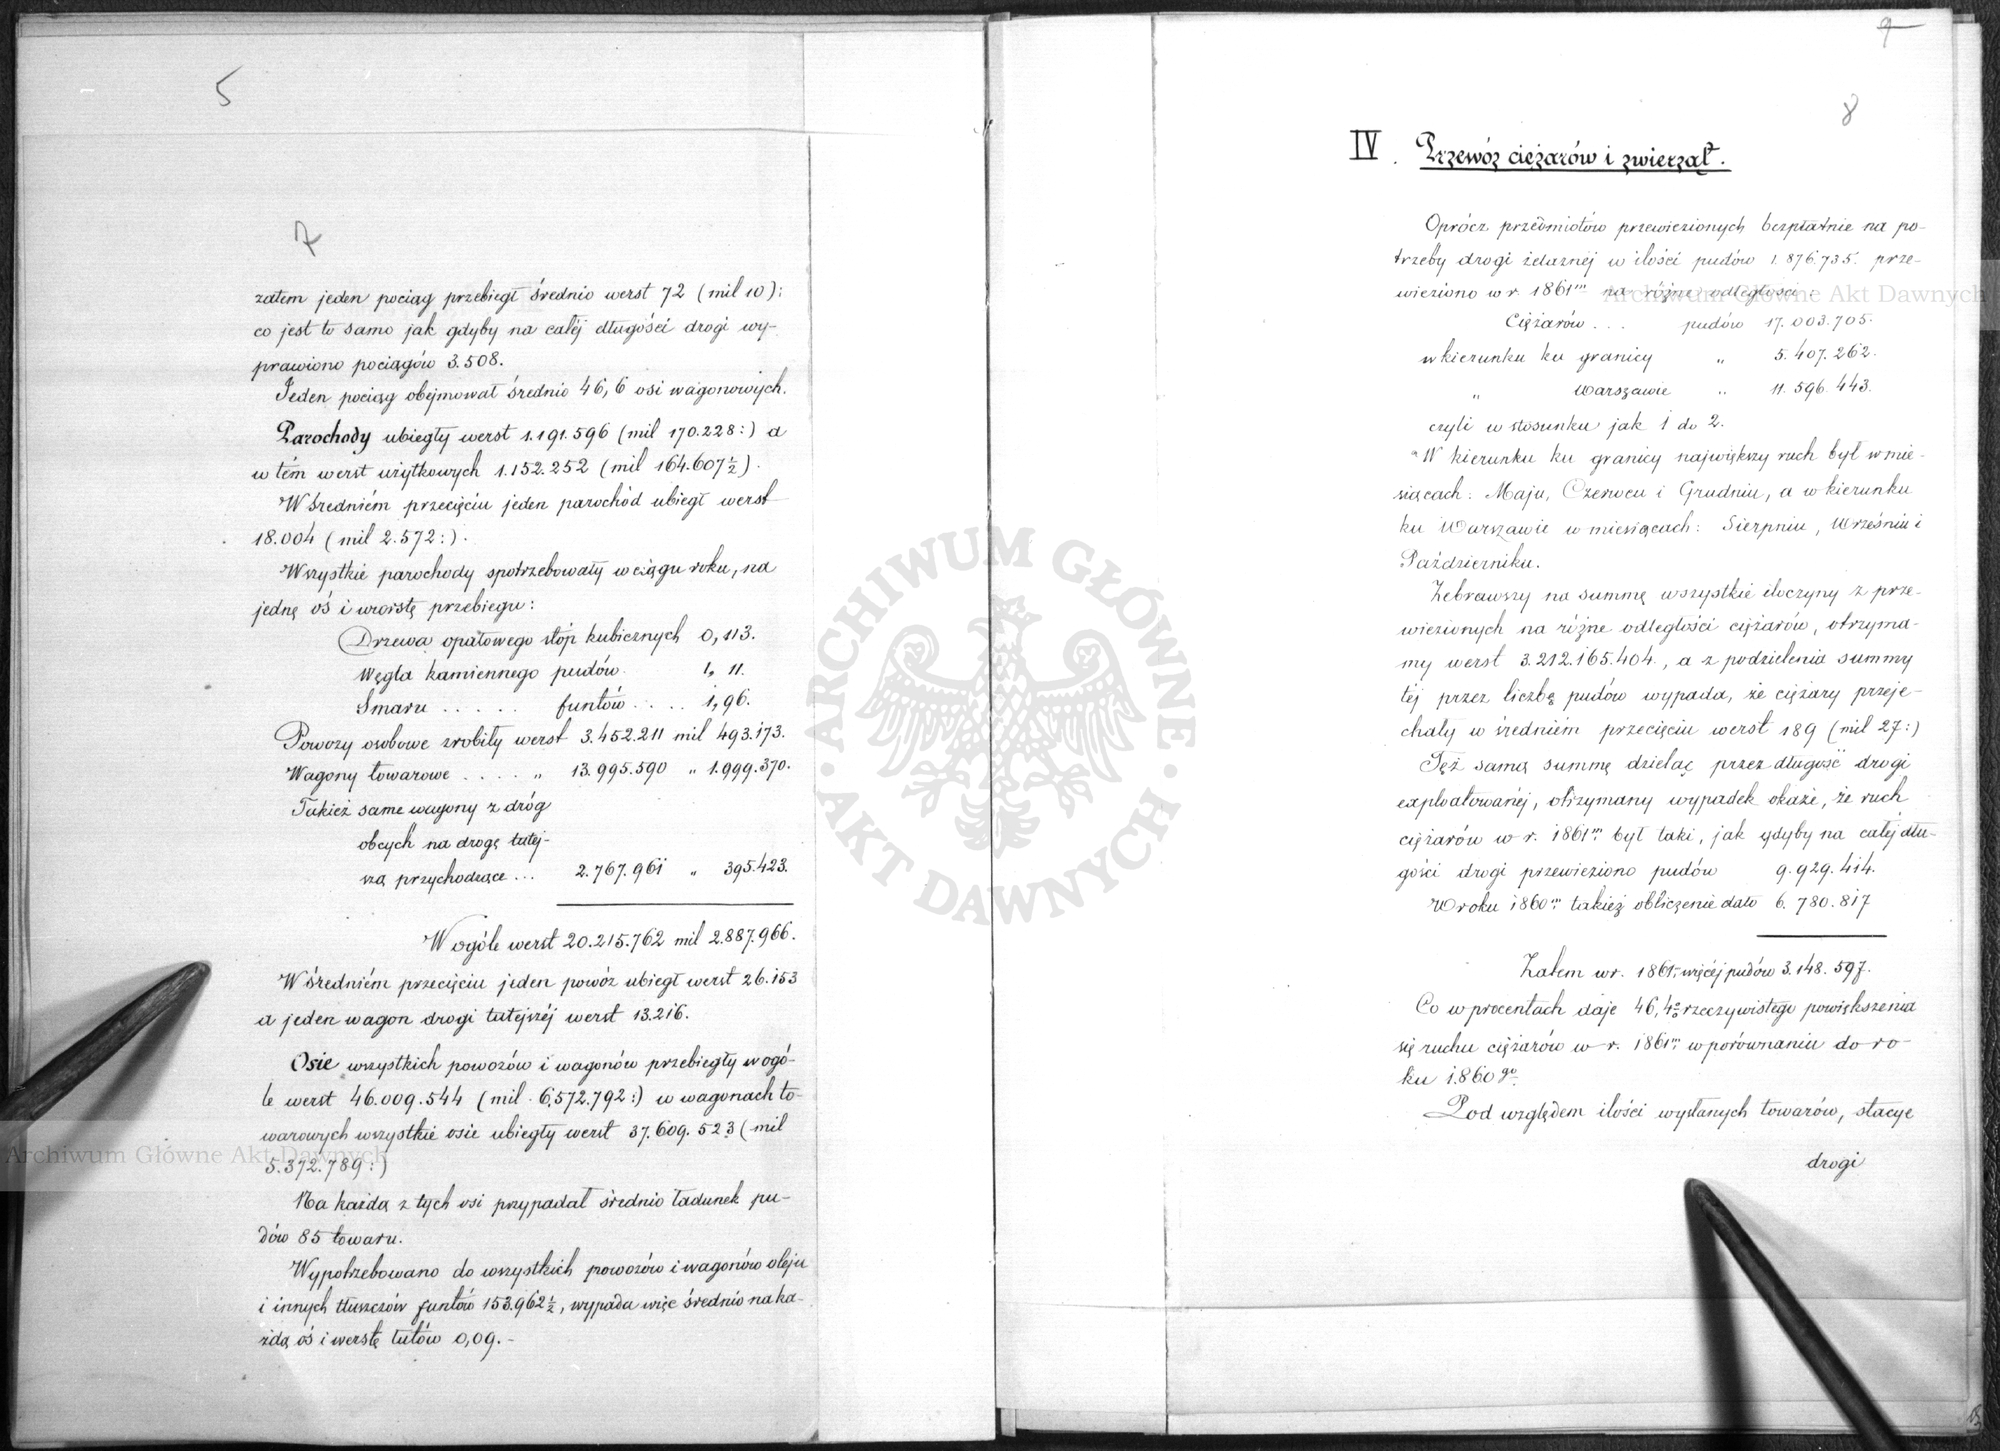 5
7
zatem jeden pociąg przebiegł średnio werst 72 (mil 10):
co jest to samo jak gdyby na całéj długości drogi wy-
prawiono pociągów 3.508.
Jeden pociąg obejmował średnio 46,6 osi wagonowych.
Parochody ubiegły werst 1.191.596 (mil 170.228:) a
w tém werst użytkowych 1.152.252 (mil 164.607½).
W średniém przecięciu jeden parochód ubiegł werst
18.004 (mil 2.572:).
Wszystkie parochody spotrzebowały w ciągu roku, na
jednę oś i worstę przebiegu:
Drzewa opałowego stóp kubicznych 0,113.
Węgla kamiennego pudów. 1,11.
Smaru . . . . . funtów . . . . 1,96.
Powozy osobowe zrobiły werst 3.452.211 mil 493.173.
Wagony towarowe . . . . „ 13.995.590 „ 1.999.370.
Takież same wagony z dróg
obcych na drogę tutej-
szą przychodzące ... 2.767.961 „ 395.423.
W ogóle werst 20.215.762 mil 2.887.966.
W średniém przecięciu jeden powóz ubiegł werst 26.153
a jeden wagon drogi tutejszéj werst 13.216.
Osie wszystkich powozów i wagonów przebiegły w ogó-
le werst 46.009.544 (mil 6.572.792:) w wagonach to-
warowych wszystkie osie ubiegły werst 37.609.523 (mil
5.372.789:)
Na każdą z tych osi przypadał średnio ładunek pu-
dów 85 towaru.
Wypotrzebowano do wszystkich powozów i wagonów oleju
i innych tłuszczów funtów 153.962½, wypada więc średnio na ka-
żdą oś i werstę łutów 0,09.-
9
8
IV. Przewóz ciężarów i zwierząt.
Oprócz przedmiotów przewiezionych bezpłatnie na po-
trzeby drogi żelaznéj w ilości pudów 1.876.735. prze-
wieziono w r. 1861m na różne odległości:
Ciężarów . . . pudów 17.003.705.
w kierunku ku granicy „ 5.407.262.
„ Warszawie „ 11.596.443.
czyli w stosunku jak 1 do 2.
W kierunku ku granicy największy ruch był w mie-
siącach: Maju, Czerwcu i Grudniu, a w kierunku
ku Warszawie w miesiącach: Sierpniu, Wrześniu i
Październiku.
Zebrawszy na summę wszystkie iloczyny z prze-
wiezionych na różne odległości ciężarów, otrzyma-
my werst 3.212.165.404., a z podzielenia summy
téj przez liczbę pudów wypada, że ciężary przeje-
chały w średniém przecięciu werst 189 (mil 27:)
Też samą summę dzieląc przez długość drogi
exploatowanéj, otrzymany wypadek okaże, że ruch
ciężarów w r. 1861m był taki, jak gdyby na całéj dłu-
gości drogi przewieziono pudów 9.929.414.
W roku 1860m takież obliczenie dało 6.780.817
Zatem w r. 1861m więcéj pudów 3.148.597.
Co w procentach daje 46,4% rzeczywistego powiększenia
się ruchu ciężarów w r. 1861m w porównaniu do ro-
ku 1860go.
Pod względem ilości wysłanych towarów, stacye
drogi
Archiwum Główne Akt Dawnych
Archiwum Główne Akt Dawnych
ARCHIWUM GŁÓWNE
· AKT DAWNYCH ·